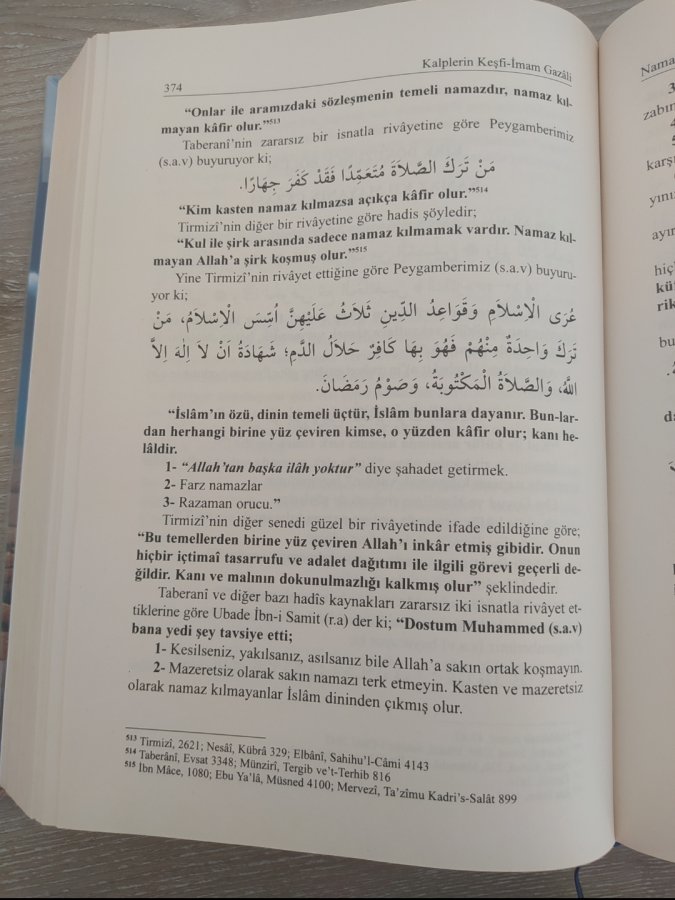 374
Kalplerin Keşfi-İmam Gazâli
“Onlar ile aramızdaki sözleşmenin temeli namazdır, namaz kıl-
mayan kâfir olur.”513
Taberanî’nin zararsız bir isnatla rivâyetine göre Peygamberimiz
(s.a.v) buyuruyor ki;
مَنْ تَرَكَ الصَّلاَةَ مُتَعَمِّدًا فَقَدْ كَفَرَ جِهَارًا.
“Kim kasten namaz kılmazsa açıkça kâfir olur.”514
Tirmizî’nin diğer bir rivâyetine göre hadis şöyledir;
“Kul ile şirk arasında sadece namaz kılmamak vardır. Namaz kıl-
mayan Allah’a şirk koşmuş olur.”515
Yine Tirmizî’nin rivâyet ettiğine göre Peygamberimiz (s.a.v) buyuru-
yor ki;
عُرَى الْاِسْلاَمِ وَقَوَاعِدُ الدِّينِ ثَلاَثُ عَلَيْهِنَّ اُسِّسَ الْاِسْلاَمُ، مَنْ
تَرَكَ وَاحِدَةً مِنْهُمْ فَهُوَ بِهَا كَافِرٌ حَلاَلُ الدَّمِ؛ شَهَادَةُ اَنْ لاَ اِلٰهَ اِلاَّ
اللهُ، وَالصَّلاَةُ الْمَكْتُوبَةُ، وَصَوْمُ رَمَضَانَ.
“İslâm’ın özü, dinin temeli üçtür, İslâm bunlara dayanır. Bun-lar-
dan herhangi birine yüz çeviren kimse, o yüzden kâfir olur; kanı he-
lâldir.
1- “Allah’tan başka ilâh yoktur” diye şahadet getirmek.
2- Farz namazlar
3- Razaman orucu.”
Tirmizî’nin diğer senedi güzel bir rivâyetinde ifade edildiğine göre;
“Bu temellerden birine yüz çeviren Allah’ı inkâr etmiş gibidir. Onun
hiçbir içtimaî tasarrufu ve adalet dağıtımı ile ilgili görevi geçerli de-
ğildir. Kanı ve malının dokunulmazlığı kalkmış olur” şeklindedir.
Taberanî ve diğer bazı hadîs kaynakları zararsız iki isnatla rivâyet et-
tiklerine göre Ubade İbn-i Samit (r.a) der ki; “Dostum Muhammed (s.a.v)
bana yedi şey tavsiye etti;
1- Kesilseniz, yakılsanız, asılsanız bile Allah’a sakın ortak koşmayın.
2- Mazeretsiz olarak sakın namazı terk etmeyin. Kasten ve mazeretsiz
olarak namaz kılmayanlar İslâm dininden çıkmış olur.
513 Tirmizî, 2621; Nesâî, Kübrâ 329; Elbânî, Sahihu’l-Câmi 4143
514 Taberânî, Evsat 3348; Münzirî, Tergib ve’t-Terhib 816
515 İbn Mâce, 1080; Ebu Ya’lâ, Müsned 4100; Mervezî, Ta’zîmu Kadri’s-Salât 899